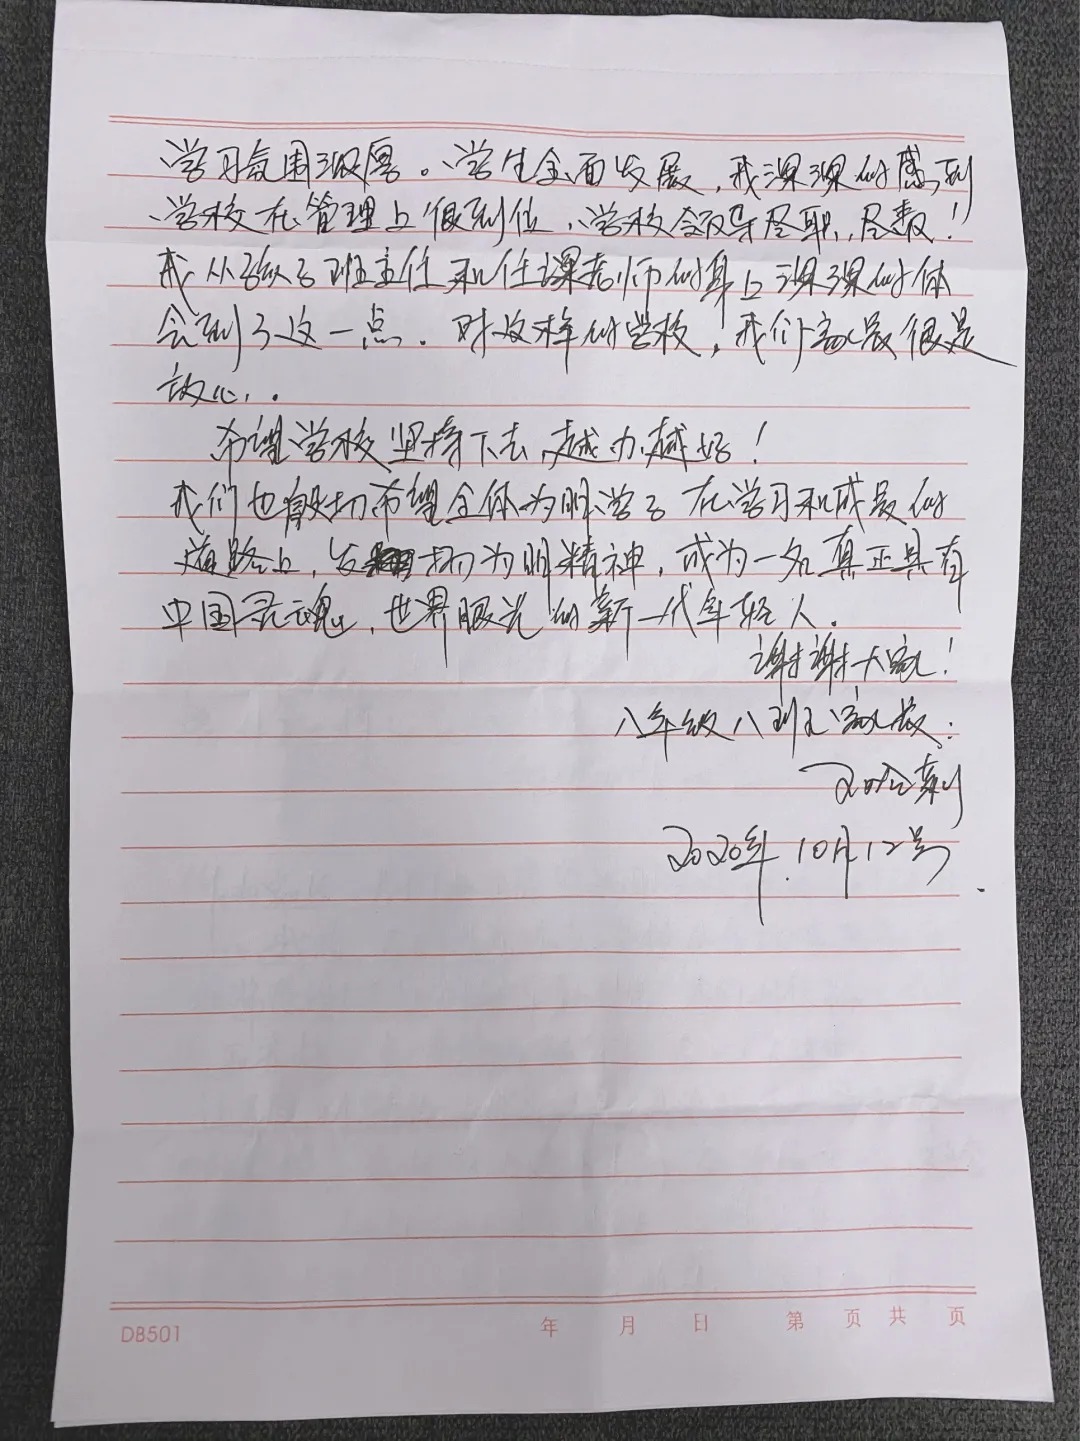 学习氛围浓厚。学生全面发展，我深深的感到
学校在管理上很到位，学校领导尽职，尽责！
我从孩子班主任和任课老师的身上深深的体
会到了这一点。对这样的学校，我们家长很是
放心。
希望学校坚持下去，越办越好！
我们也殷切希望全体为明学子在学习和成长的
道路上，发扬为明精神，成为一名真正具有
中国灵魂，世界眼光的新一代年轻人.
谢谢大家！
八年级八班家长:
2020年.10月12号
DB501
年 月 日 第 页 共 页